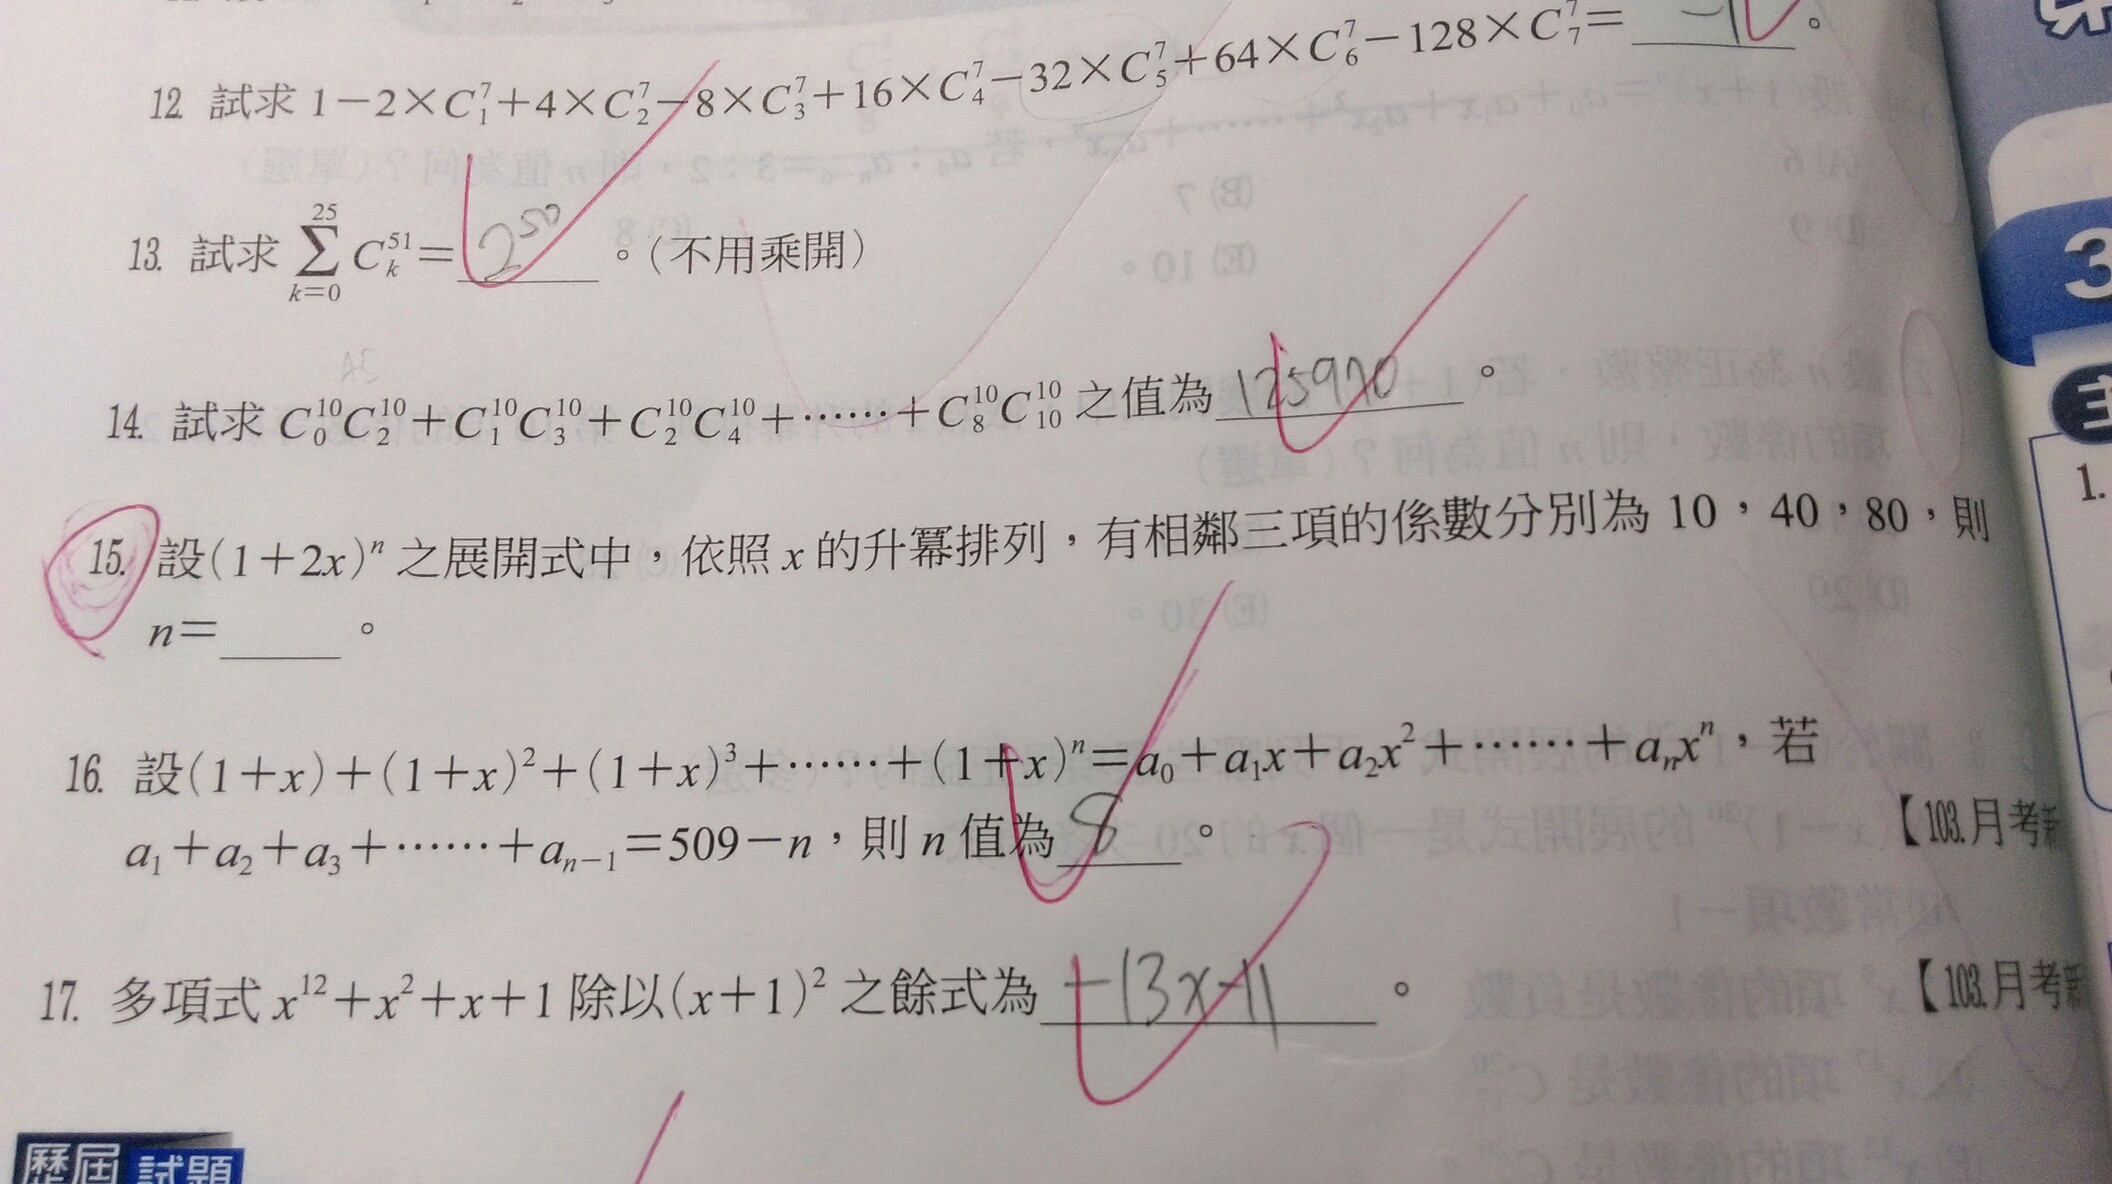 12. 試求 1－2×C₁⁷＋4×C₂⁷－8×C₃⁷＋16×C₄⁷－32×C₅⁷＋64×C₆⁷－128×C₇⁷＝ －1 。
13. 試求 ∑_{k=0}^{25} C_k^{51}＝ 2⁵⁰ 。(不用乘開)
14. 試求 C₀¹⁰C₂¹⁰＋C₁¹⁰C₃¹⁰＋C₂¹⁰C₄¹⁰＋……＋C₈¹⁰C₁₀¹⁰ 之值為 125970 。
15. 設(1＋2x)ⁿ 之展開式中，依照 x 的升冪排列，有相鄰三項的係數分別為 10，40，80，則
n＝____ 。
16. 設(1＋x)＋(1＋x)²＋(1＋x)³＋……＋(1＋x)ⁿ＝a₀＋a₁x＋a₂x²＋……＋aₙxⁿ，若
a₁＋a₂＋a₃＋……＋aₙ₋₁＝509－n，則 n 值為 8 。
【103.月考
17. 多項式 x¹²＋x²＋x＋1 除以(x＋1)² 之餘式為 －13x－11 。
【103.月考
歷屆試題
3
1.